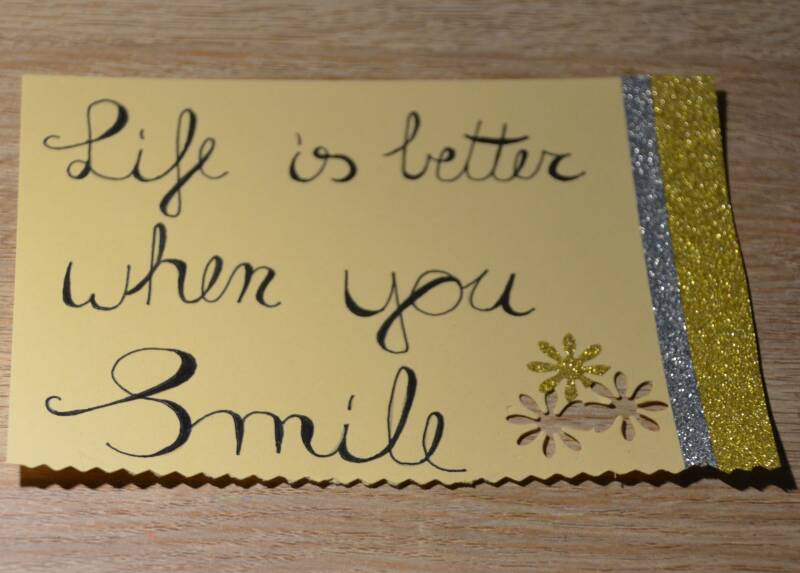 Life is better
when you
Smile